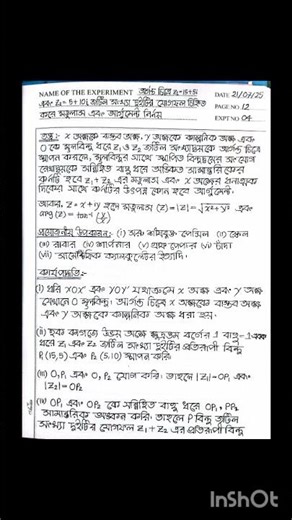 NAME OF THE EXPERIMENT আর্গন্ড চিত্রে z₁=15+5i
DATE 21/07/25
এবং z₂= 5+10i জটিল সংখ্যা দুইটির যোগফল চিহ্নিত
PAGE NO. 12
করে মডুলাস এবং আর্গুমেন্ট নির্ণয়
EXPT NO. 04
তত্ত্ব : x অক্ষকে বাস্তব অক্ষ, y অক্ষকে কাল্পনিক অক্ষ এবং
O কে মূলবিন্দু ধরে z₁ ও z₂ জটিল সংখ্যাদ্বয়কে আর্গন্ড চিত্রে
স্থাপন করলে, মূলবিন্দুর সাথে স্থাপিত বিন্দুদ্বয়ের সংযোগ
রেখাদ্বয়কে সন্নিহিত বাহু ধরে অঙ্কিত সামান্তরিকের
কর্ণটি হবে z₁+z₂ এর মডুলাস এবং x অক্ষের ধনাত্মক
দিকের সাথে কর্ণটির উৎপন্ন কোণ হবে আর্গুমেন্ট।
আবার, z = x + iy হলে মডুলাস (z) = |z| = √x²+y² এবং
arg (z) = tan⁻¹ (y/x)
প্রয়োজনীয় উপকরণ : (i) সরু শীষযুক্ত পেন্সিল (ii) স্কেল
(iii) রাবার (iv) শার্পনার (v) গ্রাফ পেপার (vi) চাঁদা
(vii) সায়েন্টিফিক ক্যালকুলেটর ইত্যাদি।
কার্যপদ্ধতি :-
(i) ধরি XOX' এবং YOY' যথাক্রমে x অক্ষ এবং y অক্ষ
যেখানে O মূলবিন্দু। আর্গন্ড চিত্রে x অক্ষকে বাস্তব অক্ষ
এবং y অক্ষকে কাল্পনিক অক্ষ ধরা হয়।
(ii) ছক কাগজে উভয় অক্ষে ক্ষুদ্রতম বর্গের 1 বাহু = 1 একক
ধরে z₁ এবং z₂ জটিল সংখ্যা দুইটির প্রতিরূপী বিন্দু
P₁ (15,5) এবং P₂ (5,10) স্থাপন করি।
(iii) O, P₁ এবং O, P₂ যোগ করি। তাহলে |z₁| = OP₁ এবং
|z₂| = OP₂
(iv) OP₁ এবং OP₂ কে সন্নিহিত বাহু ধরে OP₁, PP₂
সামান্তরিক অঙ্কন করি। তাহলে P বিন্দু জটিল
সংখ্যা দুইটির যোগফল z₁+z₂ এর প্রতিরূপী বিন্দু
InShOt